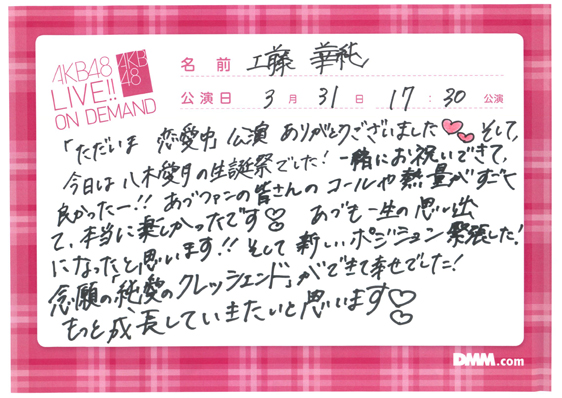 AKB48
LIVE!!
ON DEMAND
AKB
48
名前 工藤 華純
公演日 3月31日 17:30 公演
「ただいま 恋愛中」公演 ありがとうございました♡♡ そして、
今日は 八木愛月の生誕祭でした! 一緒にお祝いできて、
良かったー!! あづファンの皆さんの コールや熱量がすごく
て、本当に楽しかったです♡ あづも一生の思い出
になったと思います!! そして 新しいポジション 緊張した!
念願の「純愛のクレッシェンド」ができて幸せでした!
もっと成長していきたいと思います♡
DMM.com